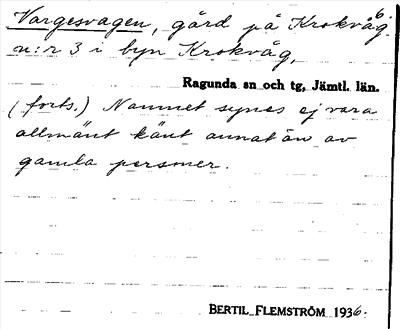 6.
Vargesvagen, gård på Krokvåg
n:r 3 i byn Krokvåg,
Ragunda sn och tg, Jämtl. län.
(forts.) Namnet synes ej vara
allmänt känt annat än av
gamla personer.
BERTIL FLEMSTRÖM 1936.